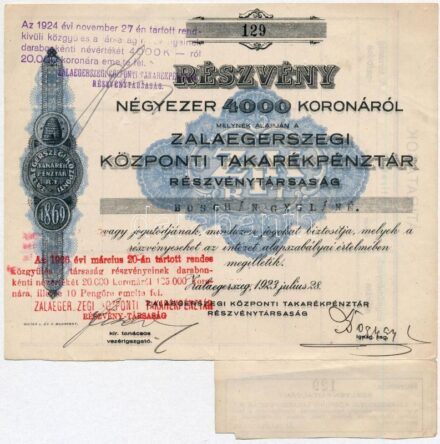 Az 1924 évi november 27-én tartott rend-
kívüli közgyűlés a társaság
darabonkénti névértékét 4000 K — ról
20.000 koronára emelte fel.
ZALAEGERSZEGI KÖZPONTI TAKARÉKPÉNZTÁR
RÉSZVÉNYTÁRSASÁG.
129
RÉSZVÉNY
NÉGYEZER 4000 KORONÁRÓL
MELYNEK ALAPJÁN A
ZALAEGERSZEGI
KÖZPONTI TAKARÉKPÉNZTÁR
RÉSZVÉNYTÁRSASÁG
BOSCHÁN GYULÁNÉ.
vagy jogutódjának, mindazon jogokat biztosítja, melyek a
részvényeseket az intézet alapszabályai értelmében
megilletik.
ZALAEGERSZEGI
TAKARÉK
PÉNZTÁR
R.T.
1869
Az 1926 évi március 20-án tartott rendes
közgyűlés társaság részvényeinek darabon-
kénti névértékét 20.000 koronáról 125.000 koro-
nára, illetve 10 Pengőre emelte fel.
ZALAEGERSZEGI KÖZPONTI TAKARÉKPÉNZTÁR
RÉSZVÉNY-TÁRSASÁG
Zalaegerszeg, 1923 július 28.
ZALAEGERSZEGI KÖZPONTI TAKARÉKPÉNZTÁR
RÉSZVÉNYTÁRSASÁG
kir. tanácsos
vezérigazgató.
igazg. tag.
129